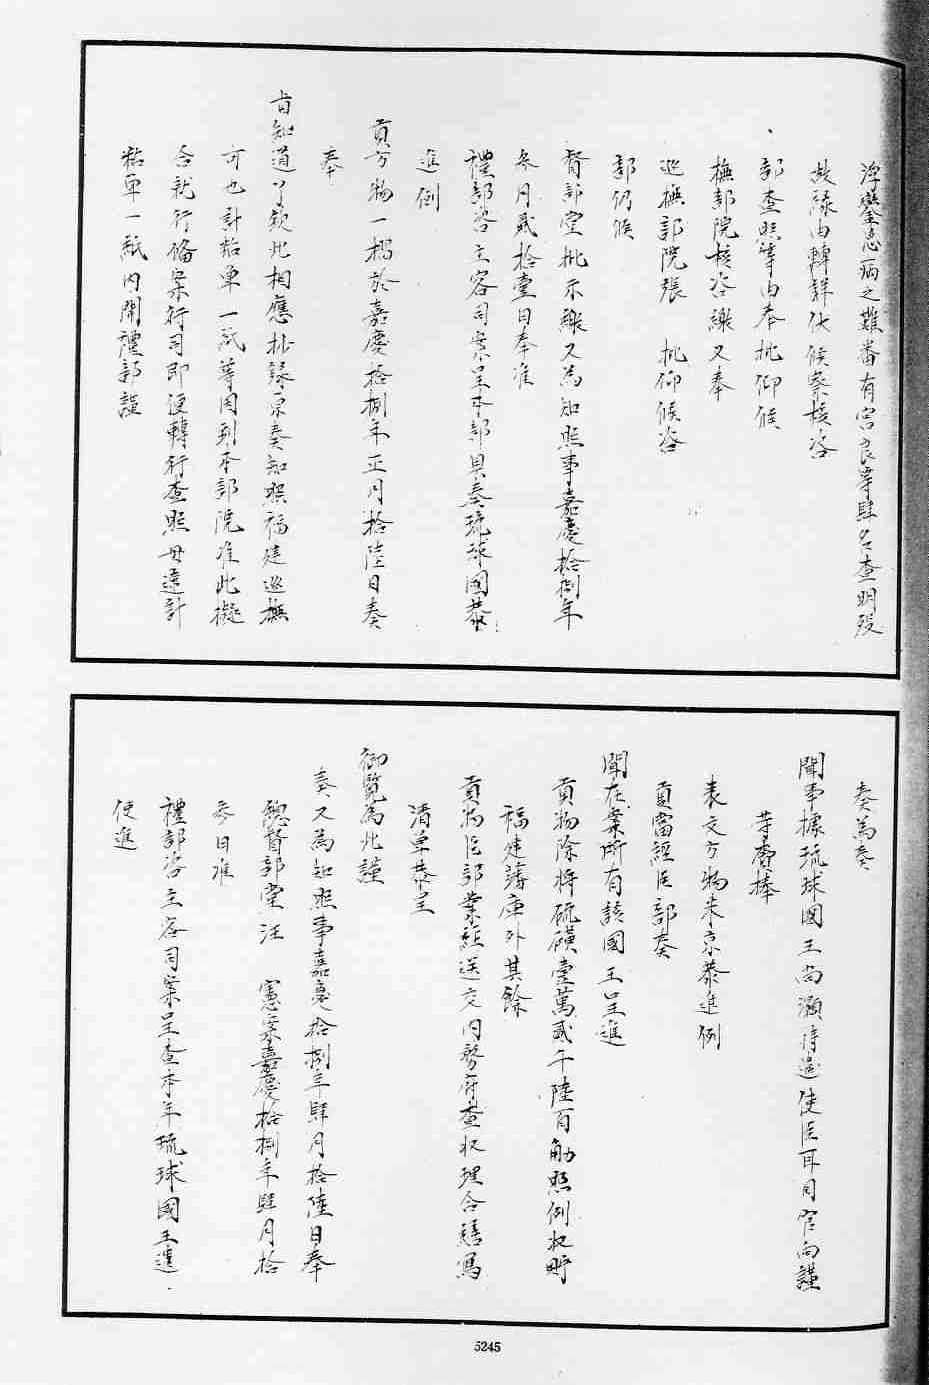 淳鑾患病之難番有宮良等肆名查明歿
故緣由轉詳伏候察核咨
部查照等由奉批仰候
撫部院核咨繳又奉
巡撫部院張　批仰候咨
部仍候
督部堂批示繳又為知照事嘉慶拾捌年
叁月貳拾壹日奉准
禮部咨主客司案呈本部具奏琉球國恭
進例
貢方物一摺於嘉慶拾捌年正月拾陸日奏
奉
旨知道了欽此相應抄錄原奏知照福建巡撫
可也計粘單一紙等因到本部院准此擬
合就行備案行司即便轉行查照毋違計
粘單一紙內開禮部謹
奏為奏
聞事據琉球國王尚灝特遣使臣耳目官向謹
等齎捧
表文方物來京恭進例
貢當經臣部奏
聞在案所有該國王呈進
貢物除將硫磺壹萬貳千陸百觔照例收貯
福建藩庫外其餘
貢物臣部業經送交內務府查收理合繕寫
清單恭呈
御覽為此謹
奏又為知照事嘉慶拾捌年肆月拾陸日奉
總督部堂汪　憲案嘉慶拾捌年肆月拾
叁日准
禮部咨主客司案呈查本年琉球國王遣
使進
5245